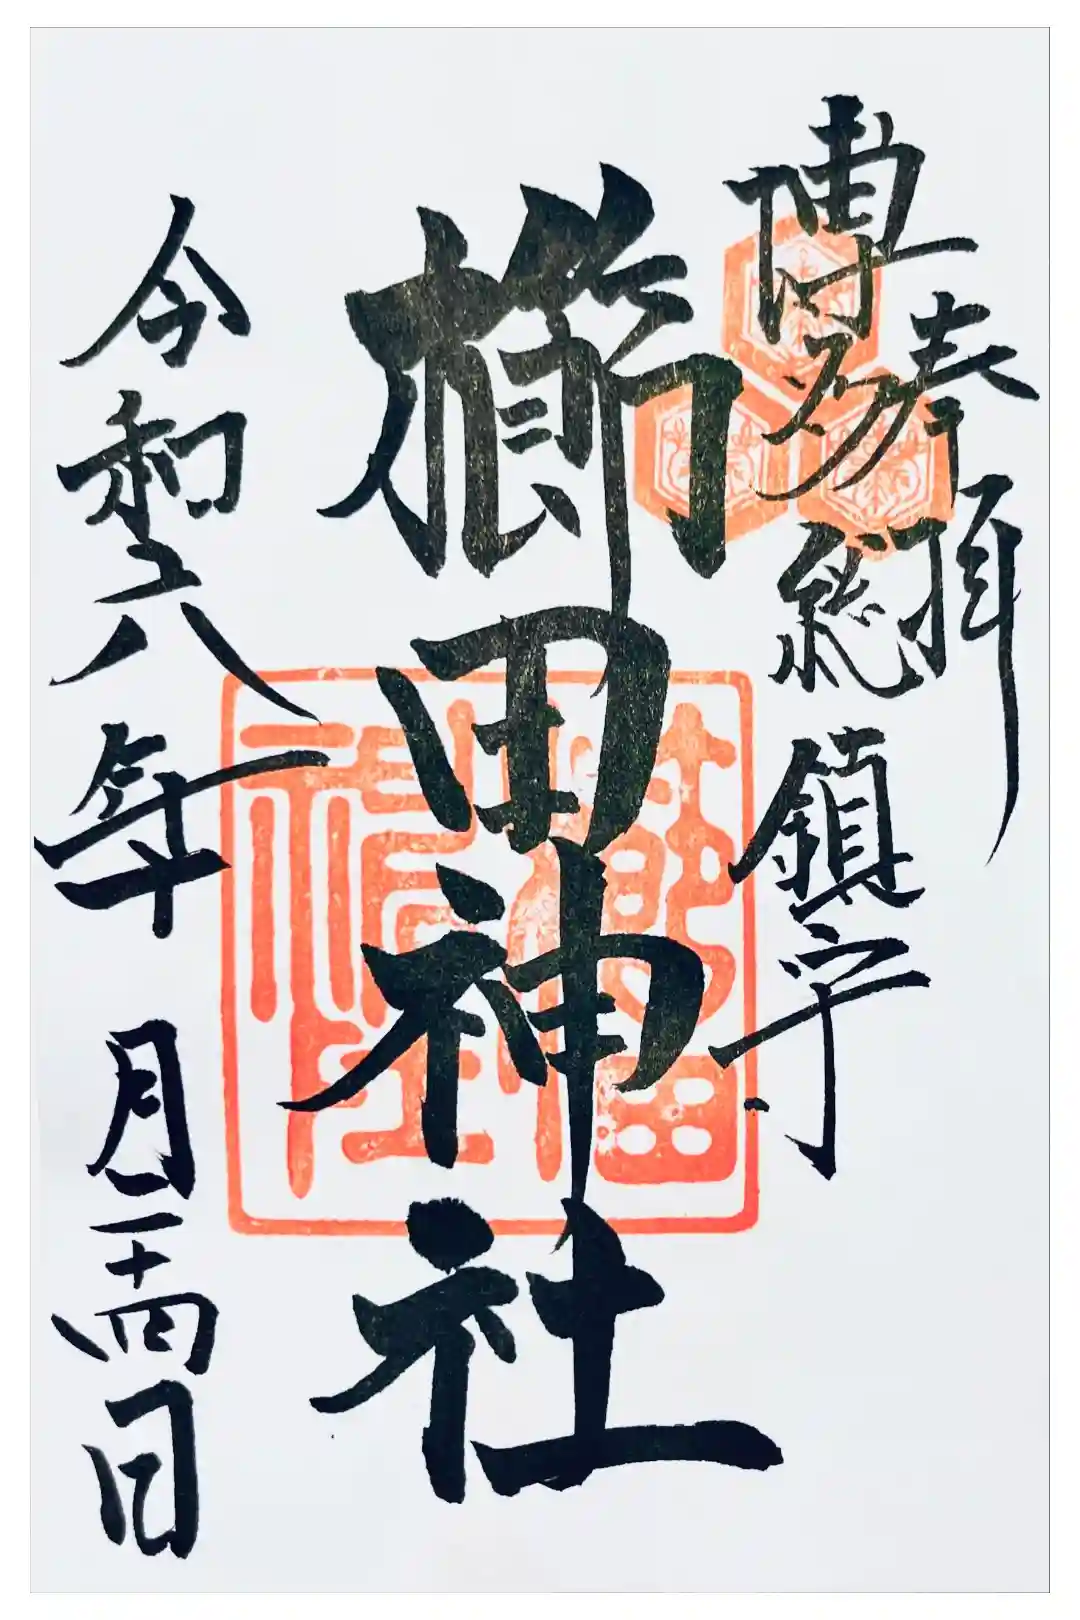 奉拝
博多総鎮守
櫛田神社
櫛田
神社
令和六年 月二十四日